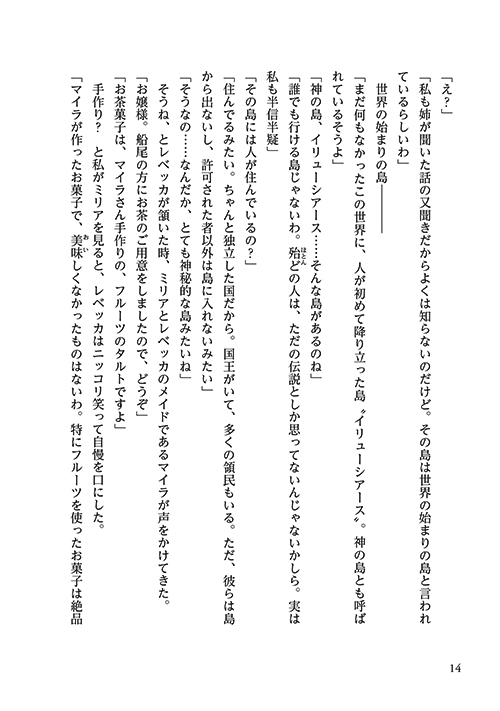 「え？」
「私も姉が聞いた話の又聞きだからよくは知らないのだけど。その島は世界の始まりの島と言われ
ているらしいわ」
　世界の始まりの島――――
「まだ何もなかったこの世界に、人が初めて降り立った島〝イリューシアース〟。神の島とも呼ば
れているそうよ」
「神の島、イリューシアース……そんな島があるのね」
「誰でも行ける島じゃないわ。殆どの人は、ただの伝説としか思ってないんじゃないかしら。実は
私も半信半疑」
「その島には人が住んでいるの？」
「住んでるみたい。ちゃんと独立した国だから。国王がいて、多くの領民もいる。ただ、彼らは島
から出ないし、許可された者以外は島に入れないみたい」
「そうなの……なんだか、とても神秘的な島みたいね」
　そうね、とレベッカが頷いた時、ミリアとレベッカのメイドであるマイラが声をかけてきた。
「お嬢様。船尾の方にお茶のご用意をしましたので、どうぞ」
「お茶菓子は、マイラさん手作りの、フルーツのタルトですよ」
　手作り？　と私がミリアを見ると、レベッカはニッコリ笑って自慢を口にした。
「マイラが作ったお菓子で、美味しくなかったものはないわ。特にフルーツを使ったお菓子は絶品
ほとん
おい
14